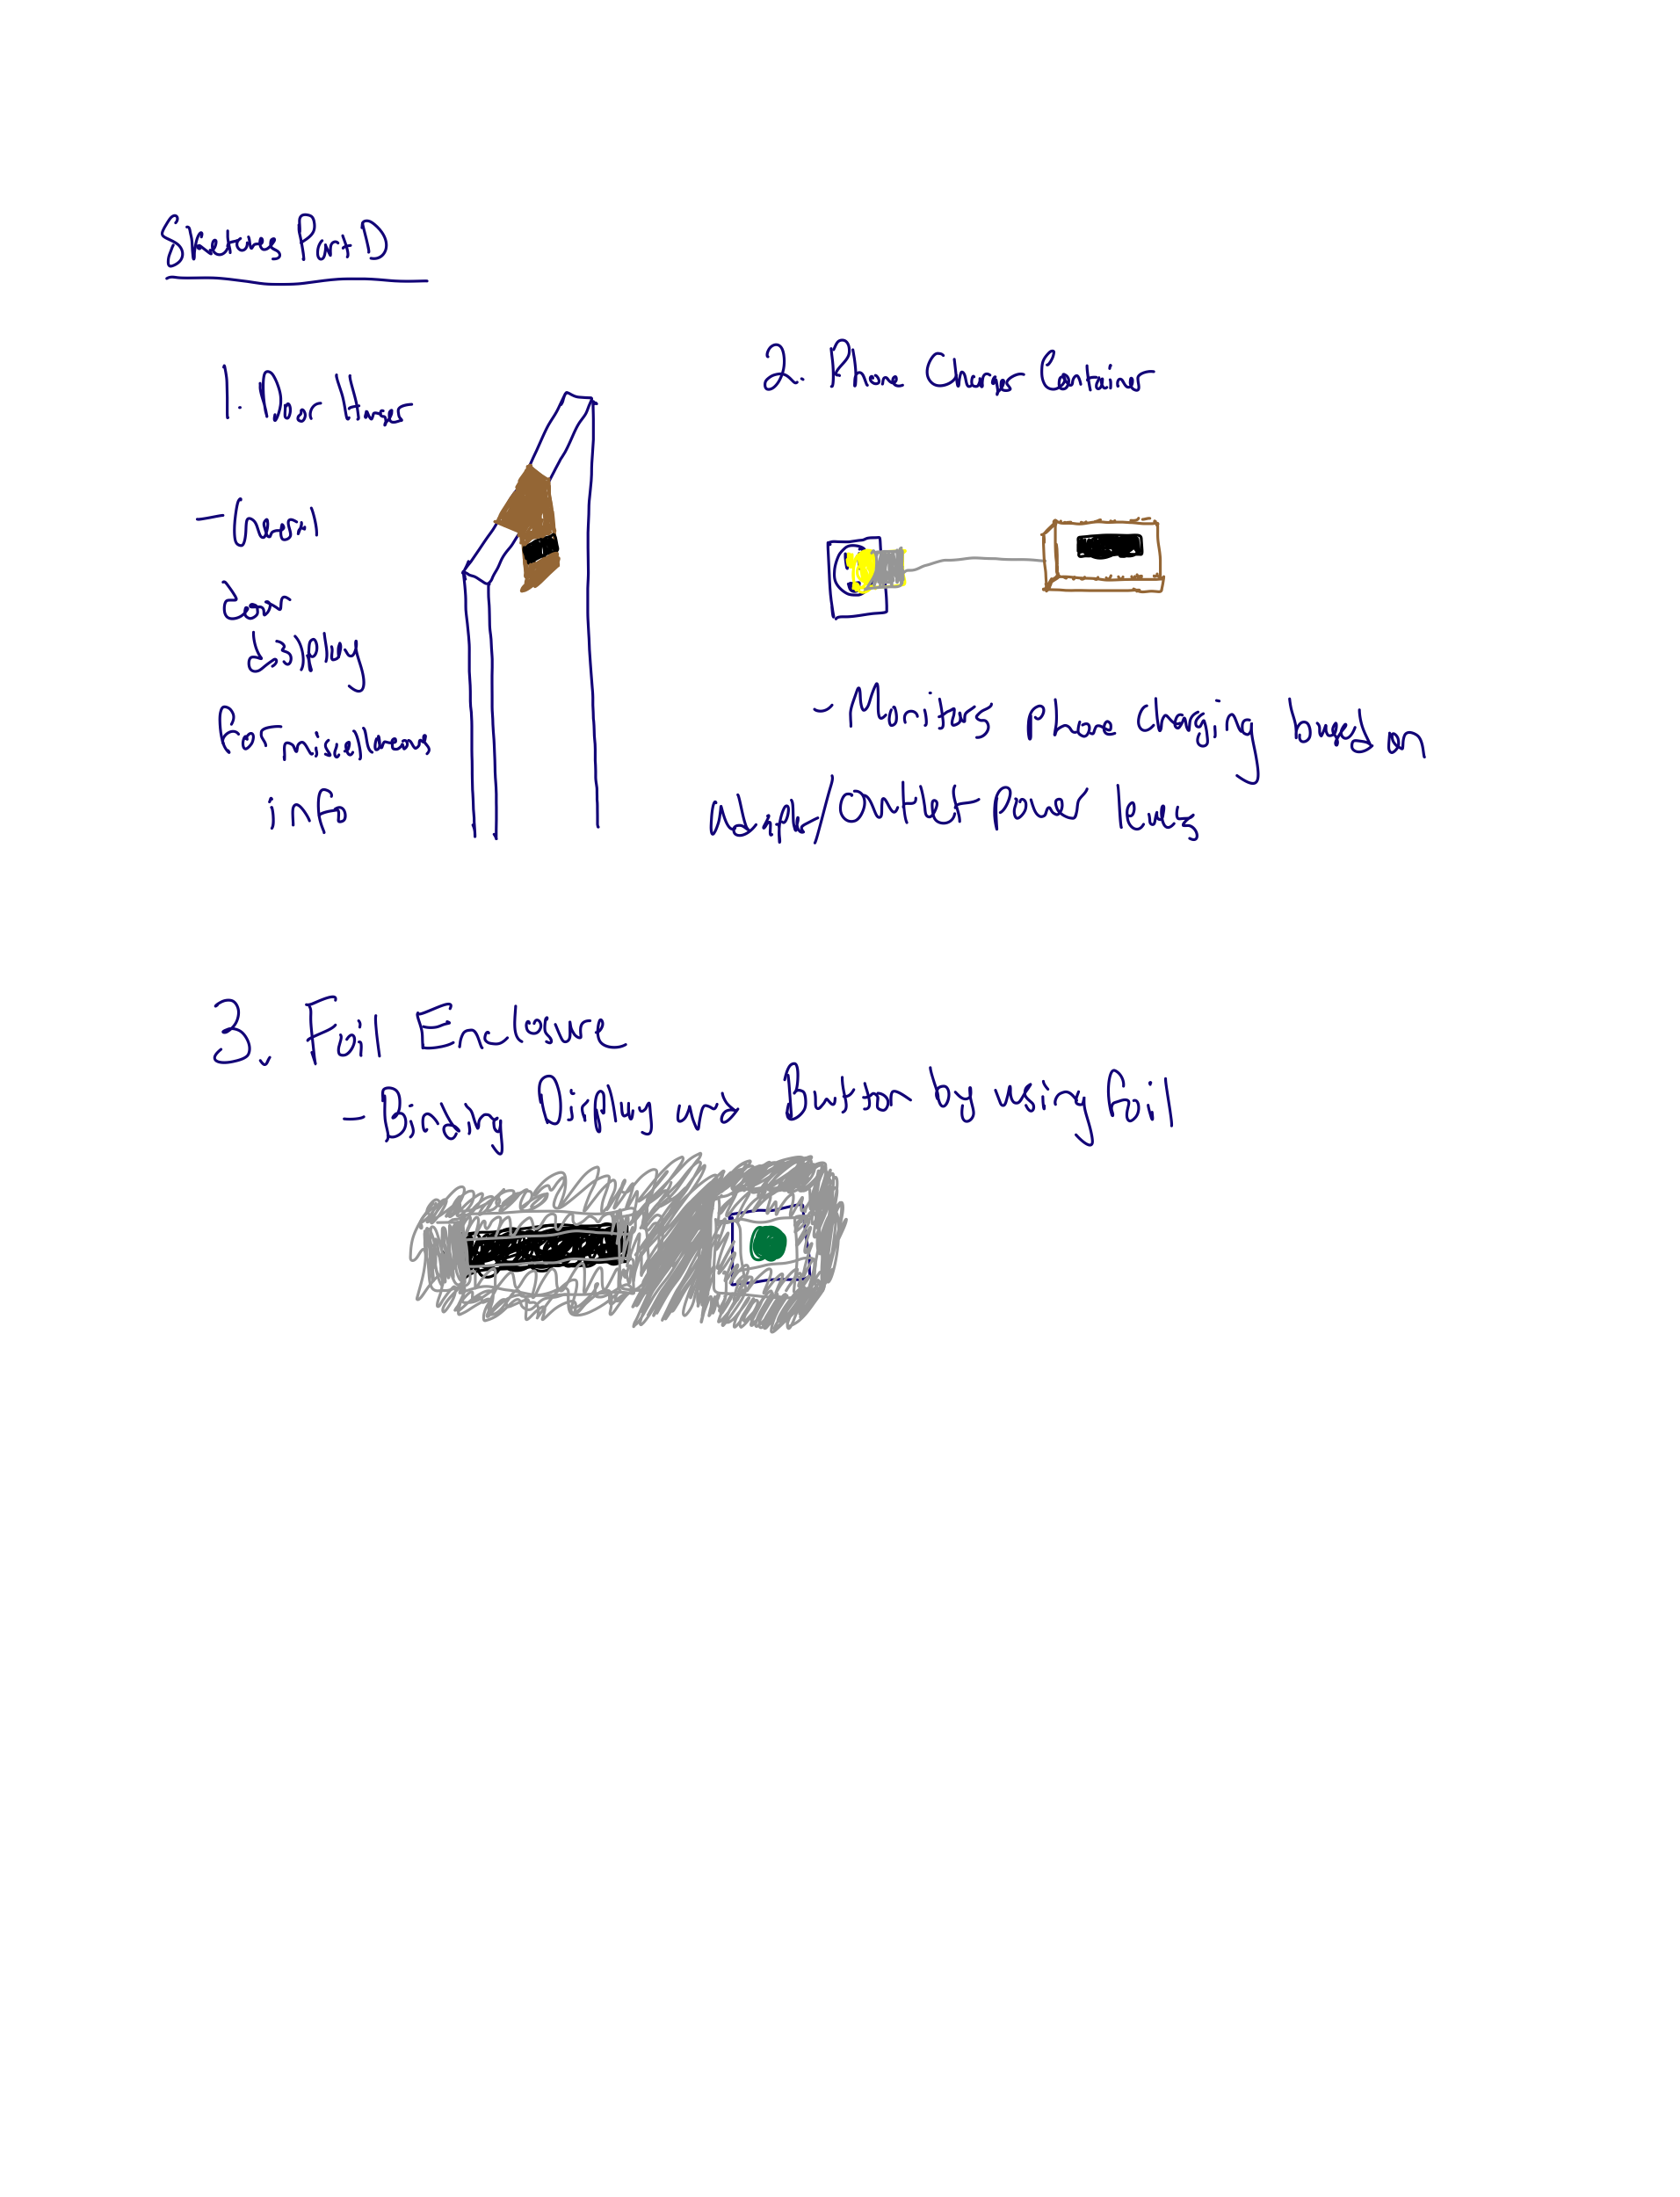 Sketches Part D
1. Door Hanger
- General
door
display
for miscellaneous
info
2. Phone Charger Container
- Monitors phone charging based on
adapter/outlet power levels
3. Foil Enclosure
- Binding Display and Button by using foil